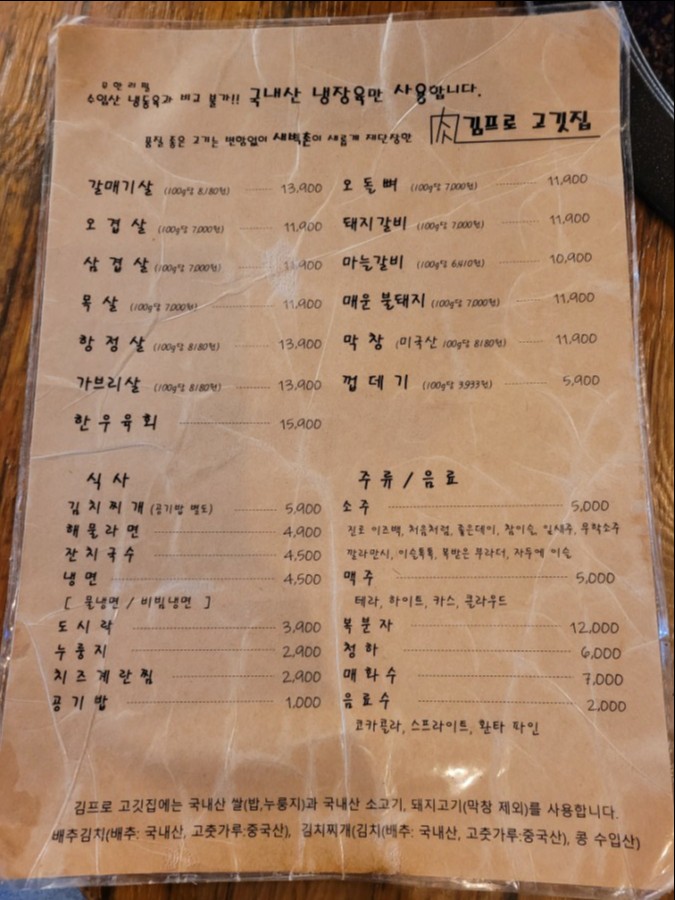 무한리필
수입산 냉동육과 비교 불가!! 국내산 냉장육만 사용합니다.
품질 좋은 고기는 변함없이 새벽혼이 새롭게 재단장한 肉김프로 고깃집
갈매기살 (100g당 8,180원) 13,900 오돌뼈 (100g당 7,000원) 11,900
오겹살 (100g당 7,000원) 11,900 돼지갈비 (100g당 7,000원) 11,900
삼겹살 (100g당 7,000원) 11,900 마늘갈비 (100g당 6,410원) 10,900
목살 (100g당 7,000원) 11,900 매운 불돼지 (100g당 7,000원) 11,900
항정살 (100g당 8,180원) 13,900 막창 (미국산 100g당 8,180원) 11,900
가브리살 (100g당 8,180원) 13,900 껍데기 (100g당 3,933원) 5,900
한우육회 15,900
식사
김치찌개 (공기밥 별도) 5,900
해물라면 4,900
잔치국수 4,500
냉면 4,500
[ 물냉면 / 비빔냉면 ]
도시락 3,900
누룽지 2,900
치즈계란찜 2,900
공기밥 1,000
주류/음료
소주 5,000
진로 이즈백, 처음처럼, 좋은데이, 참이슬, 잎새주, 무학소주
깔라만시, 이슬톡톡, 복받은 부라더, 자두에 이슬
맥주 5,000
테라, 하이트, 카스, 클라우드
복분자 12,000
청하 6,000
매화수 7,000
음료수 2,000
코카콜라, 스프라이트, 환타 파인
김프로 고깃집에는 국내산 쌀(밥,누룽지)과 국내산 소고기, 돼지고기(막창 제외)를 사용합니다.
배추김치(배추: 국내산, 고춧가루:중국산), 김치찌개(김치(배추: 국내산, 고춧가루:중국산), 콩 수입산)